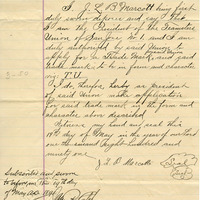 I, J. L. B. Marcott being first
duly sworn depose and say that
I am the President of the Teamsters
Union of San Jose and I am
duly authorized by said Union to
apply for a Trade Mark, and said
trade mark is to be in form and character
T. U.
I do, therefore, hereby as president
of said Union make application
for said trade mark in the form and
character above described
Witness my hand and seal this
19th day of May in the year of our Lord
one thousand eight hundred and
ninety one.
J. L. B Marcotte
Seal
Subscribed and sworn
to before me this 19th day
of May A.D. 1891